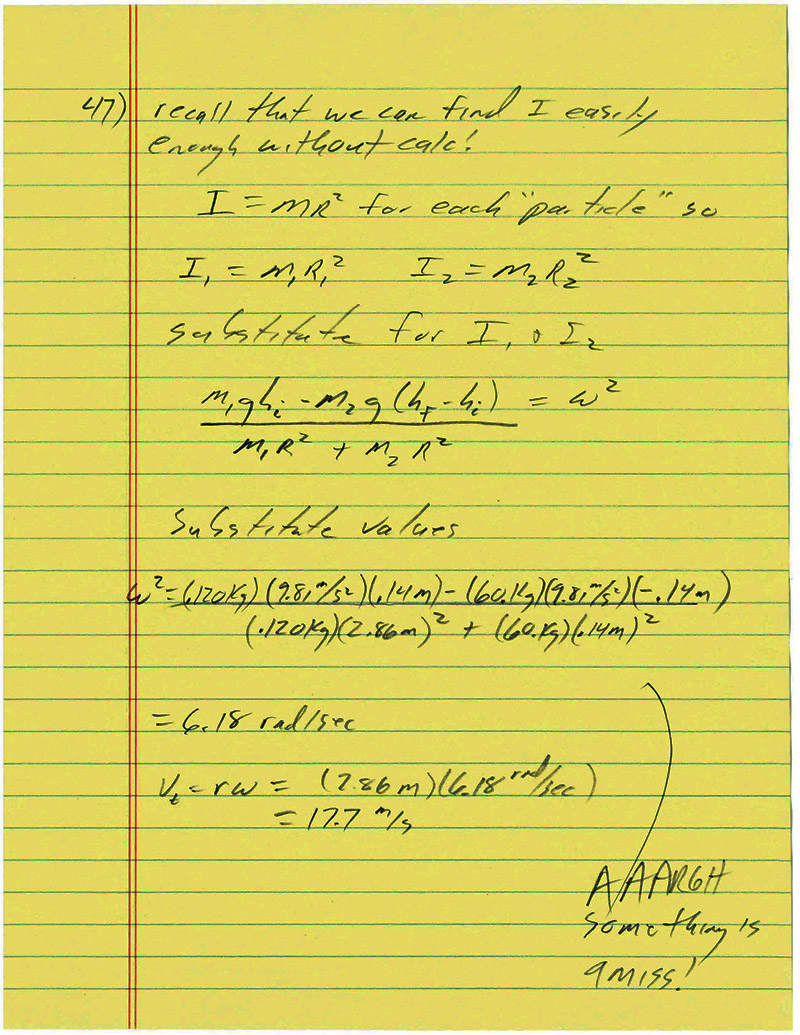 47) recall that we can find I easily
enough without calc!
I = mR² for each "particle" so
I₁ = m₁R₁² I₂ = m₂R₂²
substitute for I₁ & I₂
m₁ghᵢ - m₂g (h_f - hᵢ) = ω²
m₁R² + m₂R²
substitute values
ω² = (.120Kg)(9.81 m/s²)(.14m) - (60.Kg)(9.81 m/s²)(-.14m)
(.120Kg)(2.86m)² + (60.Kg)(.14m)²
= 6.18 rad/sec
Vₜ = rω = (2.86m)(6.18 rad/sec)
= 17.7 m/s
AAARGH
something is
amiss!